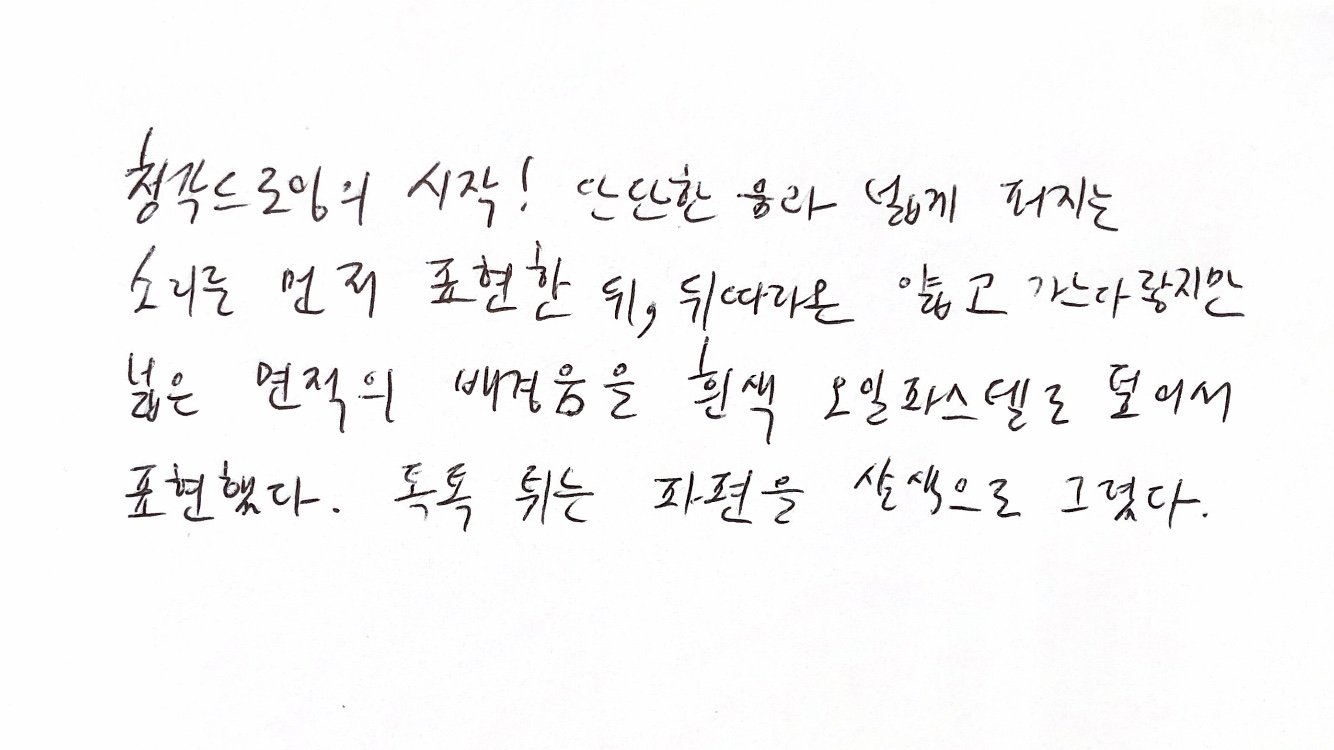 청각드로잉의 시작! 단단한 웅과 넓게 퍼지는
소리를 먼저 표현한 뒤, 뒤따라온 얇고 가느다랗지만
넓은 면적의 배경음을 흰색 오일파스텔로 덮어서
표현했다. 톡톡 튀는 파편을 살색으로 그렸다.